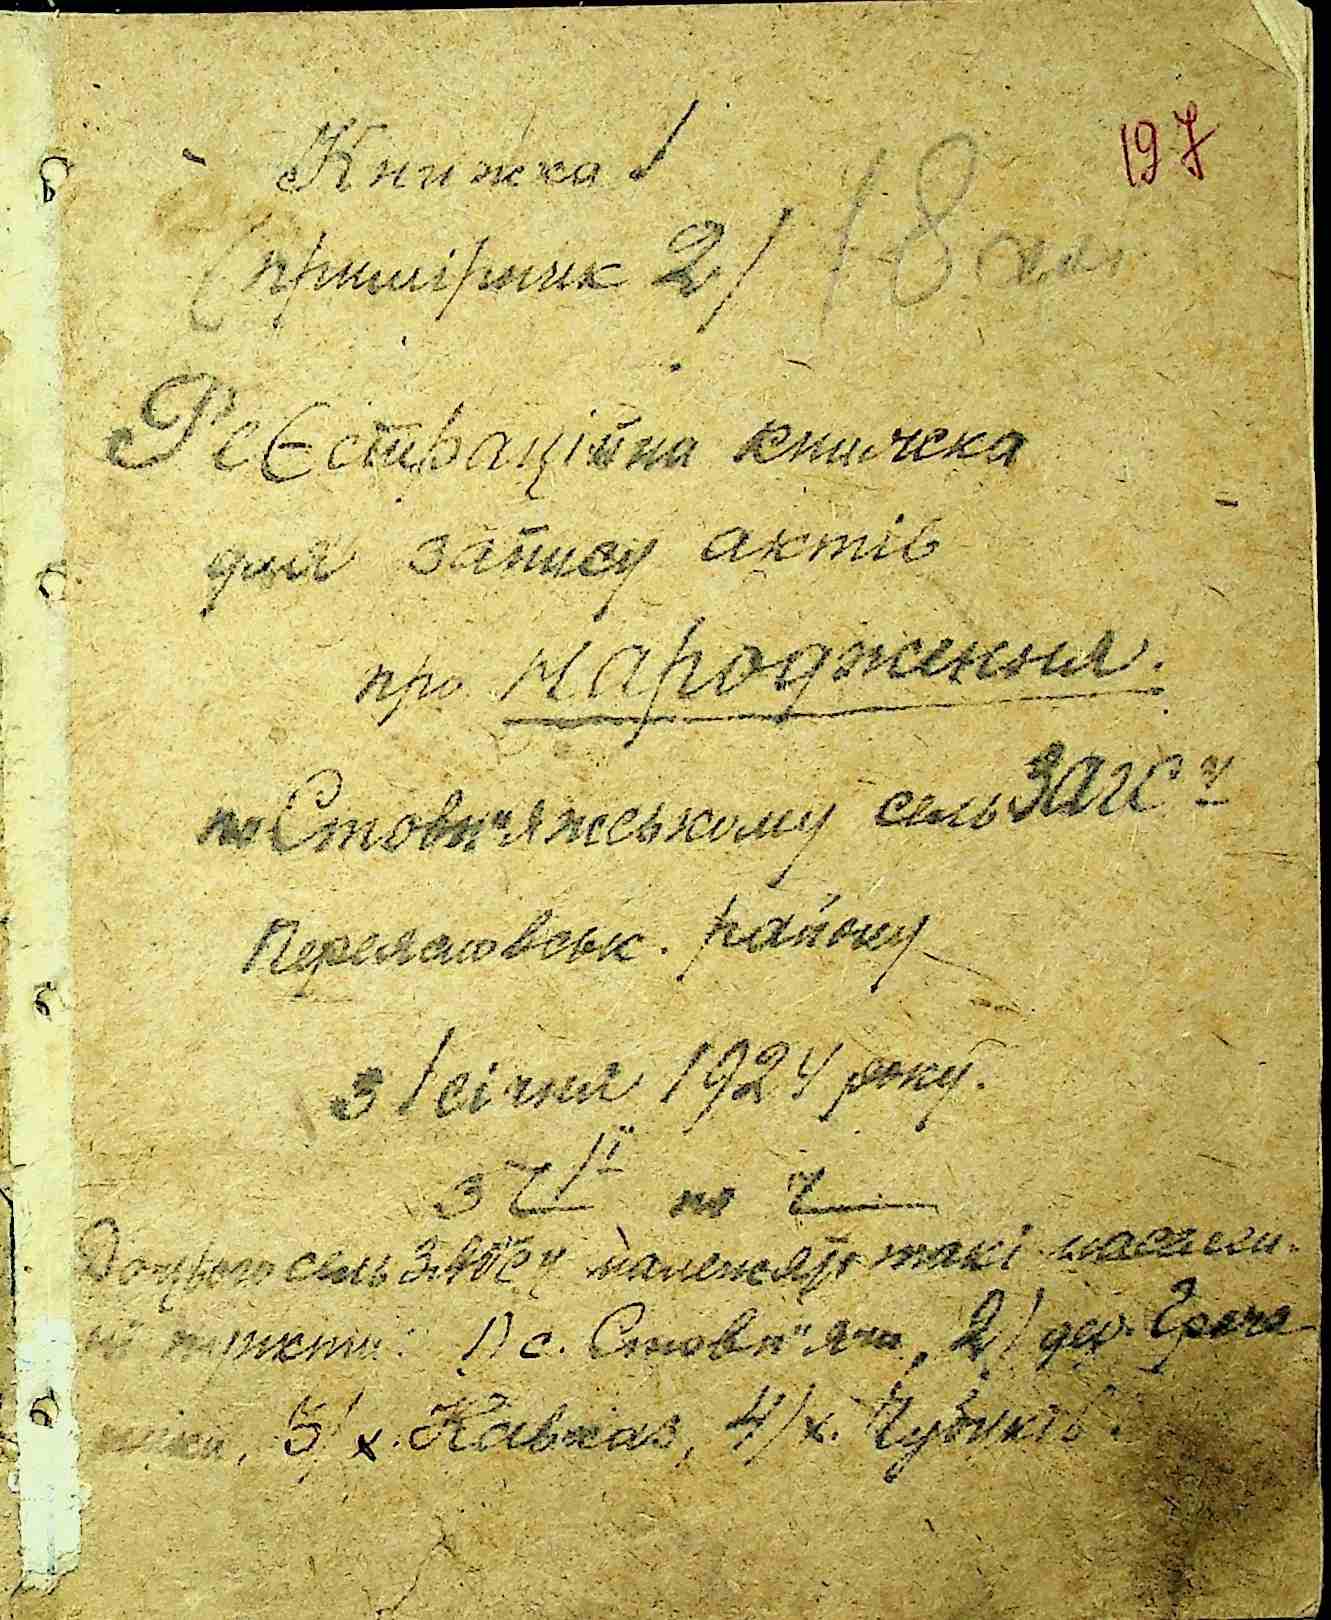 197
Книжка 1
(примірник 2)
18
Реєстраційна книжка
для запису актів
про народження.
по Стовп"яжському сельЗАГСу
Переяславськ. району
з 1 січня 1924 року.
з № 1 по №
До цього сельЗАГСу належять такі населен-
ні пункти: 1) с. Стовп"яги, 2) дер. Греча-
ники, 3) х. Кавказ, 4) х. Чубуків.